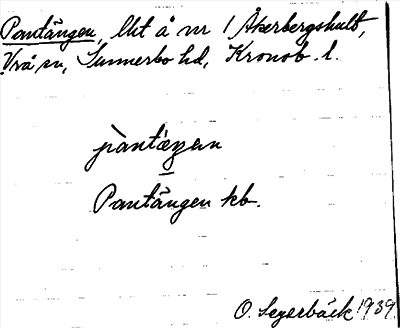 Pantängen, lht å nr 1 Åkerbergshult,
Vrå sn, Sunnerbo hd, Kronob. l.
pàntæŋən
Pantängen kb.
O. Segerbäck 1939